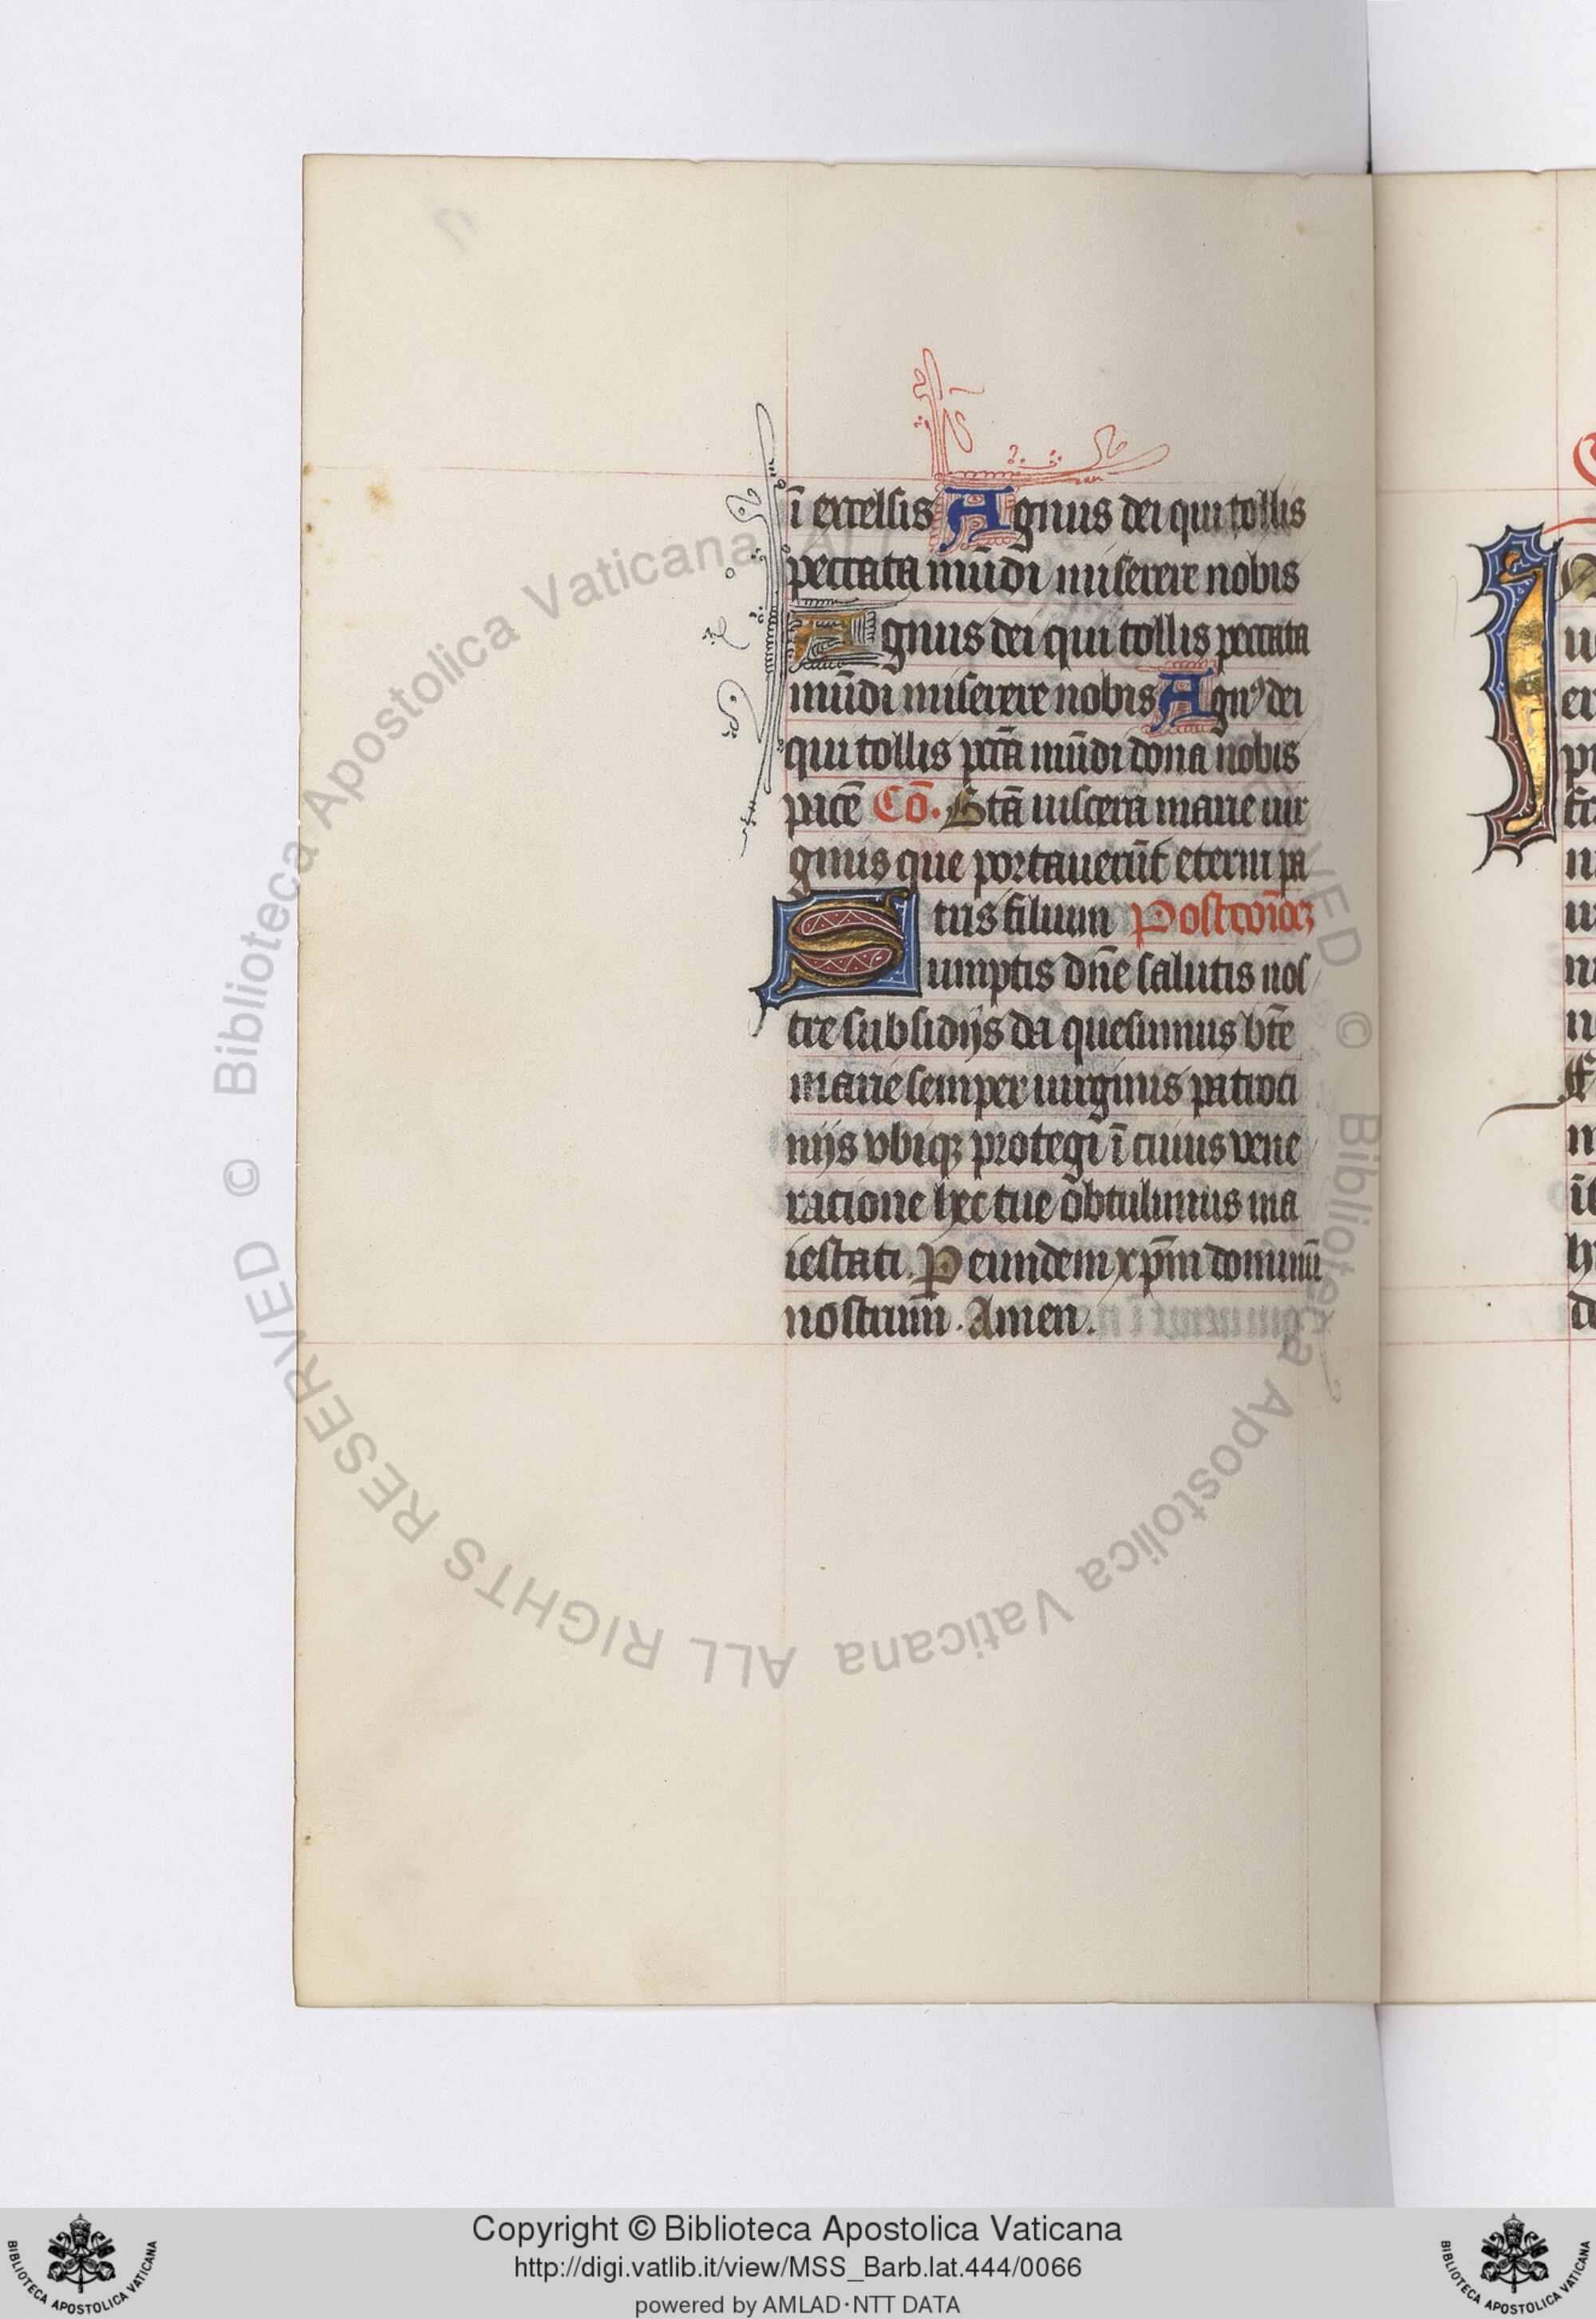 ī excelsis Agnus dei qui tollis
peccata mūdi miserere nobis
Agnus dei qui tollis peccata
mūdi miserere nobis Agnꝰ dei
qui tollis pctā mūdi dona nobis
pacē Cō. Btā uiscera marie uir
ginis que portauerūt eterni pa
tris filium Postcōīoꝫ
Sumptis dn̄e salutis nos
tre subsidijs da quesumus bt̄e
marie semper uirginis patroci
nijs vbiqꝫ protegi ī cuius vene
racione hec tue obtulimus ma
iestati. P eundem xp̄m dominū
nostrum̄. Amen.
Biblioteca Apostolica Vaticana ALL RIGHTS RESERVED ©
Biblioteca Apostolica Vaticana ALL RIGHTS RESERVED ©
BIBLIOTECA APOSTOLICA VATICANA
Copyright © Biblioteca Apostolica Vaticana
http://digi.vatlib.it/view/MSS_Barb.lat.444/0066
powered by AMLAD·NTT DATA
BIBLIOTECA APOSTOLICA VATICANA